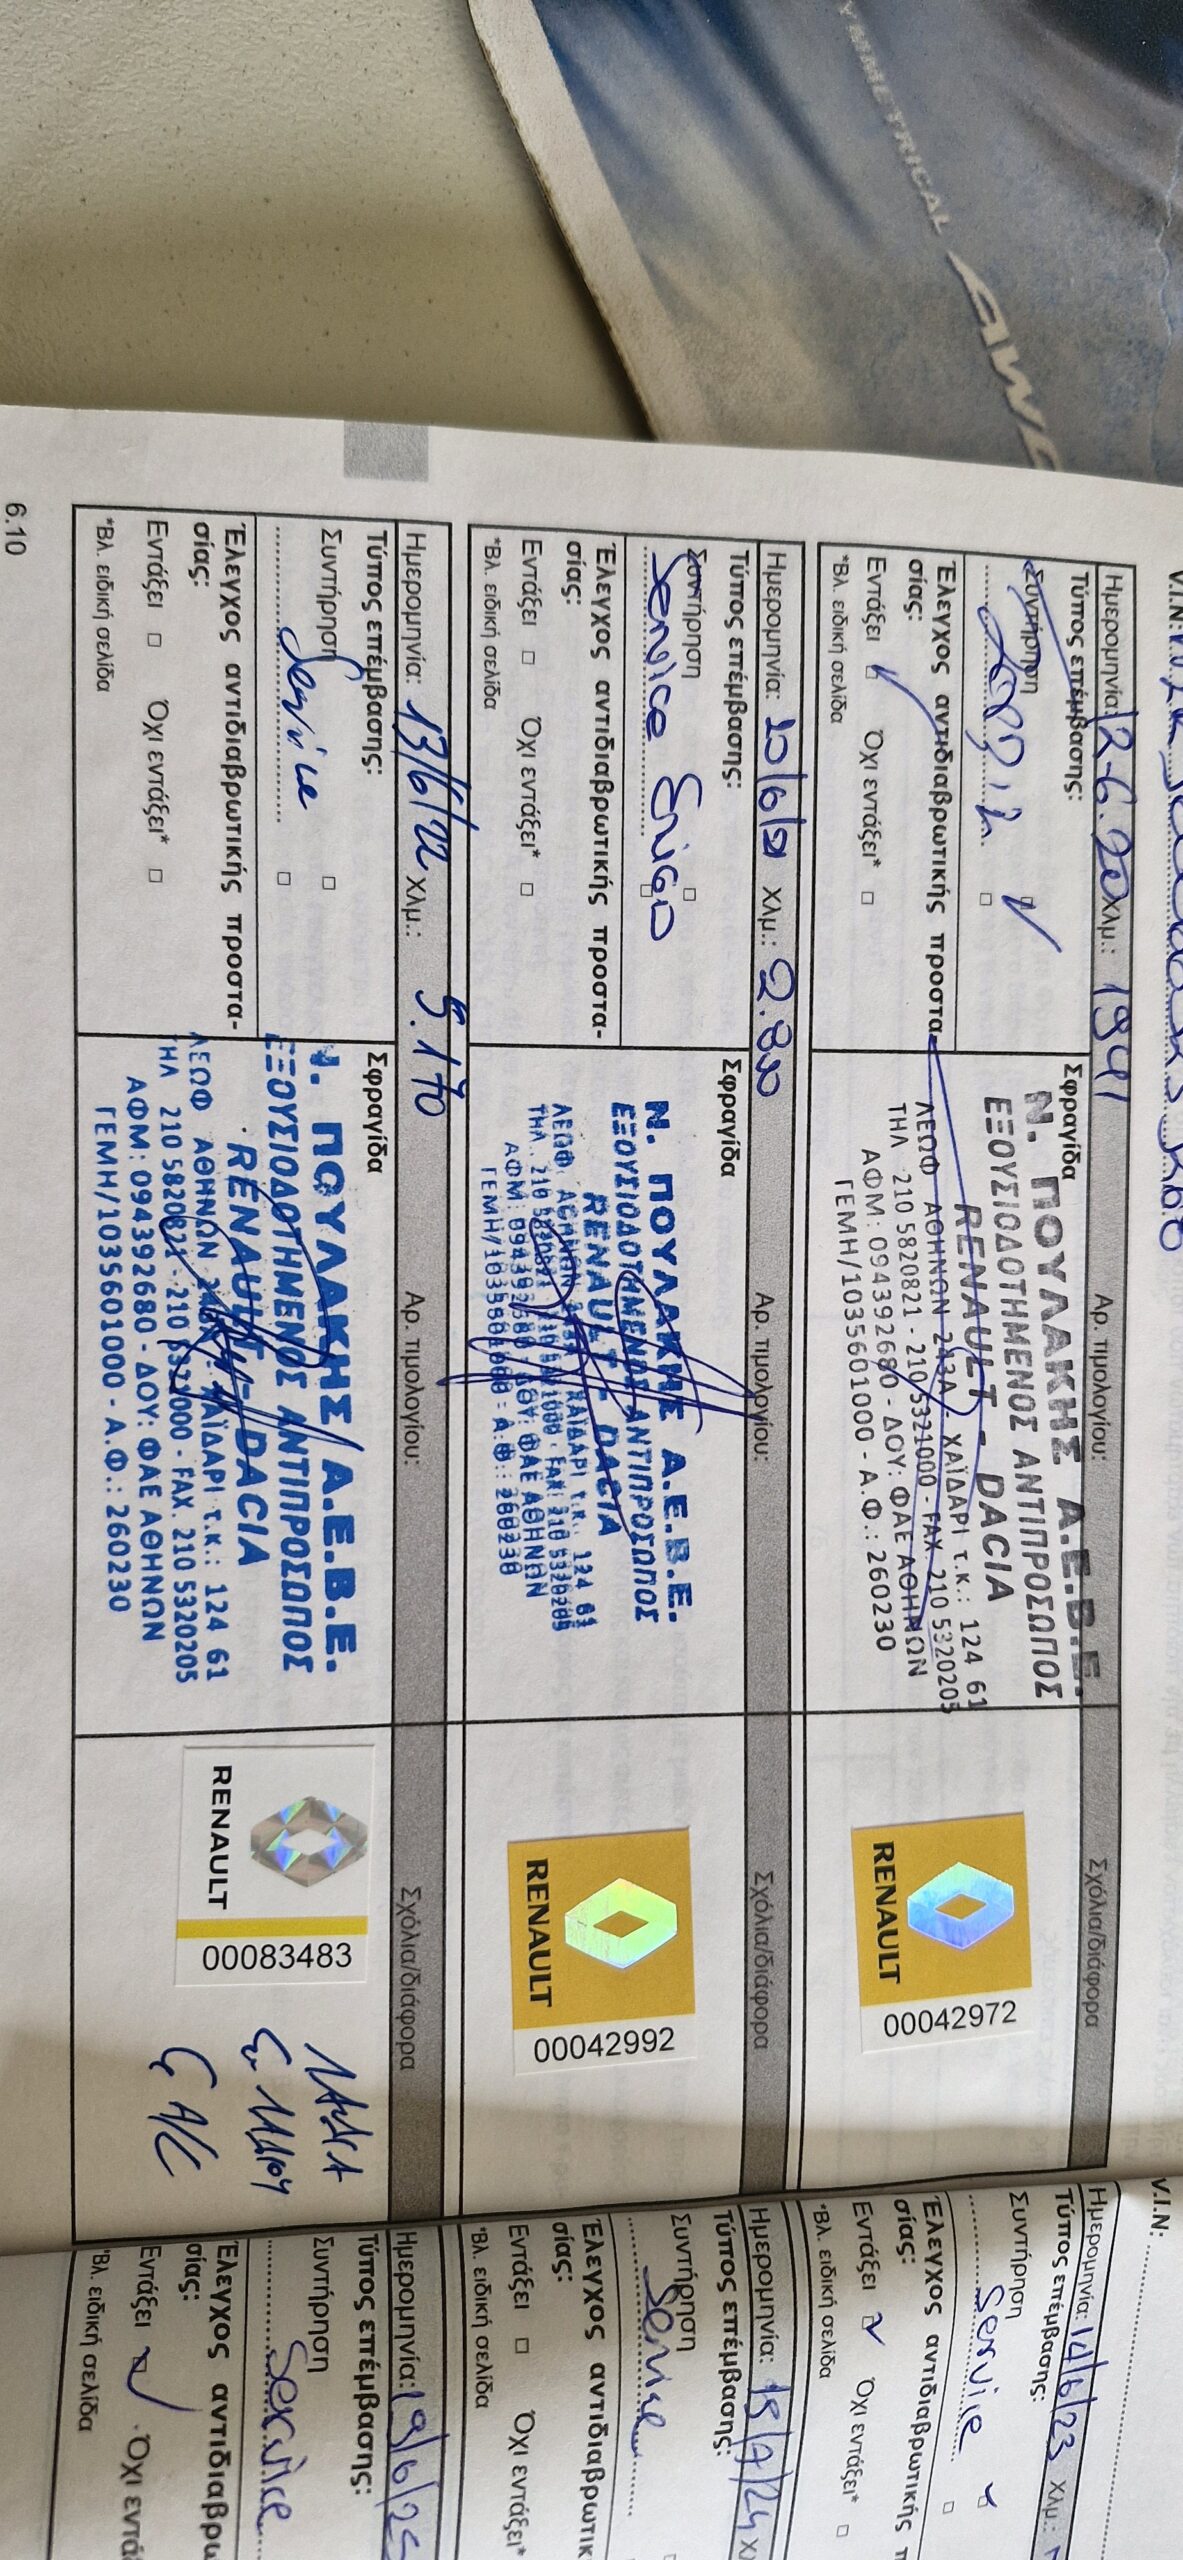 YMMETRICAL AWD
V.I.N:
Ημερομηνία: 12-6-20 χλμ.: 1941 Αρ. τιμολογίου: Σχόλια/διάφορα
Τύπος επέμβασης:
Συντήρηση
Έλεγχος αντιδιαβρωτικής προστα-
σίας:
Εντάξει Όχι εντάξει*
*Βλ. ειδική σελίδα
Σφραγίδα
Ν. ΠΟΥΛΑΚΗΣ Α.Ε.Β.Ε.
ΕΞΟΥΣΙΟΔΟΤΗΜΕΝΟΣ ΑΝΤΙΠΡΟΣΩΠΟΣ
RENAULT - DACIA
ΛΕΩΦ ΑΘΗΝΩΝ 243Α - ΧΑΪΔΑΡΙ τ.κ.: 124 61
ΤΗΛ 210 5820821 - 210 5321000 - FAX 210 5320205
ΑΦΜ: 094392680 - ΔΟΥ: ΦΑΕ ΑΘΗΝΩΝ
ΓΕΜΗ/1035601000 - Α.Φ.: 260230
RENAULT
00042972
Ημερομηνία: χλμ.: Αρ. τιμολογίου: Σχόλια/διάφορα
Τύπος επέμβασης:
Συντήρηση
Service
Έλεγχος αντιδιαβρωτικής προστα-
σίας:
Εντάξει Όχι εντάξει*
*Βλ. ειδική σελίδα
Σφραγίδα
Ν. ΠΟΥΛΑΚΗΣ Α.Ε.Β.Ε.
ΕΞΟΥΣΙΟΔΟΤΗΜΕΝΟΣ ΑΝΤΙΠΡΟΣΩΠΟΣ
RENAULT - DACIA
ΛΕΩΦ. ΑΘΗΝΩΝ ΧΑΪΔΑΡΙ τ.κ.: 124 61
ΤΗΛ. 210 5820821 210 5321000 - FAX 210 5320205
ΑΦΜ: 094392680 ΔΟΥ: ΦΑΕ ΑΘΗΝΩΝ
ΓΕΜΗ/1035601000 - Α.Φ.: 260230
RENAULT
00042992
Ημερομηνία: 13/6/22 χλμ.: 5.170 Αρ. τιμολογίου: Σχόλια/διάφορα
Τύπος επέμβασης:
Συντήρηση
Service
Έλεγχος αντιδιαβρωτικής προστα-
σίας:
Εντάξει Όχι εντάξει*
*Βλ. ειδική σελίδα
Σφραγίδα
Ν. ΠΟΥΛΑΚΗΣ Α.Ε.Β.Ε.
ΕΞΟΥΣΙΟΔΟΤΗΜΕΝΟΣ ΑΝΤΙΠΡΟΣΩΠΟΣ
RENAULT - DACIA
ΛΕΩΦ ΑΘΗΝΩΝ ΧΑΪΔΑΡΙ τ.κ.: 124 61
ΤΗΛ 210 5820821 - 210 5321000 - FAX. 210 5320205
ΑΦΜ: 094392680 - ΔΟΥ: ΦΑΕ ΑΘΗΝΩΝ
ΓΕΜΗ/1035601000 - Α.Φ.: 260230
RENAULT
00083483
A/C
6.10
V.I.N:
Ημερομηνία: 14/6/23 χλμ.:
Τύπος επέμβασης:
Συντήρηση
Service
Έλεγχος αντιδιαβρωτικής π
σίας:
Εντάξει Όχι εντάξει*
*Βλ. ειδική σελίδα
Ημερομηνία: 15/7/24 χλ
Τύπος επέμβασης:
Συντήρηση
Service
Έλεγχος αντιδιαβρωτικ
σίας:
Εντάξει Όχι εντάξει*
*Βλ. ειδική σελίδα
Ημερομηνία: 19/6/25
Τύπος επέμβασης:
Συντήρηση
Service
Έλεγχος αντιδιαβρω
σίας:
Εντάξει Όχι εντά
*Βλ. ειδική σελίδα